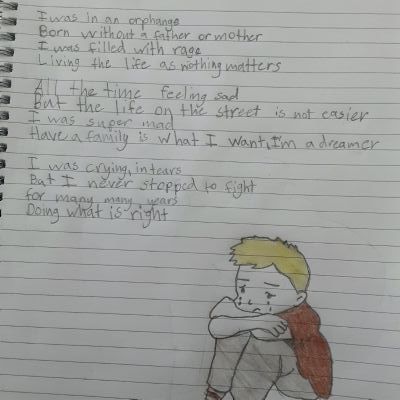 I was in an orphange
Born without a father or mother
I was filled with rage
Living the life as nothing matters
All the time feeling sad
But the life on the street is not easier
I was super mad
Have a family is what I want, I'm a dreamer
I was crying, in tears
But I never stopped to fight
for many many years
Doing what is right